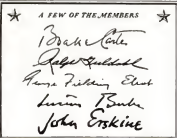 A FEW OF THE MEMBERS
Boake Carter
Ralph Guldahl
George Fielding Eliot
Lucius Beebe
John Erskine